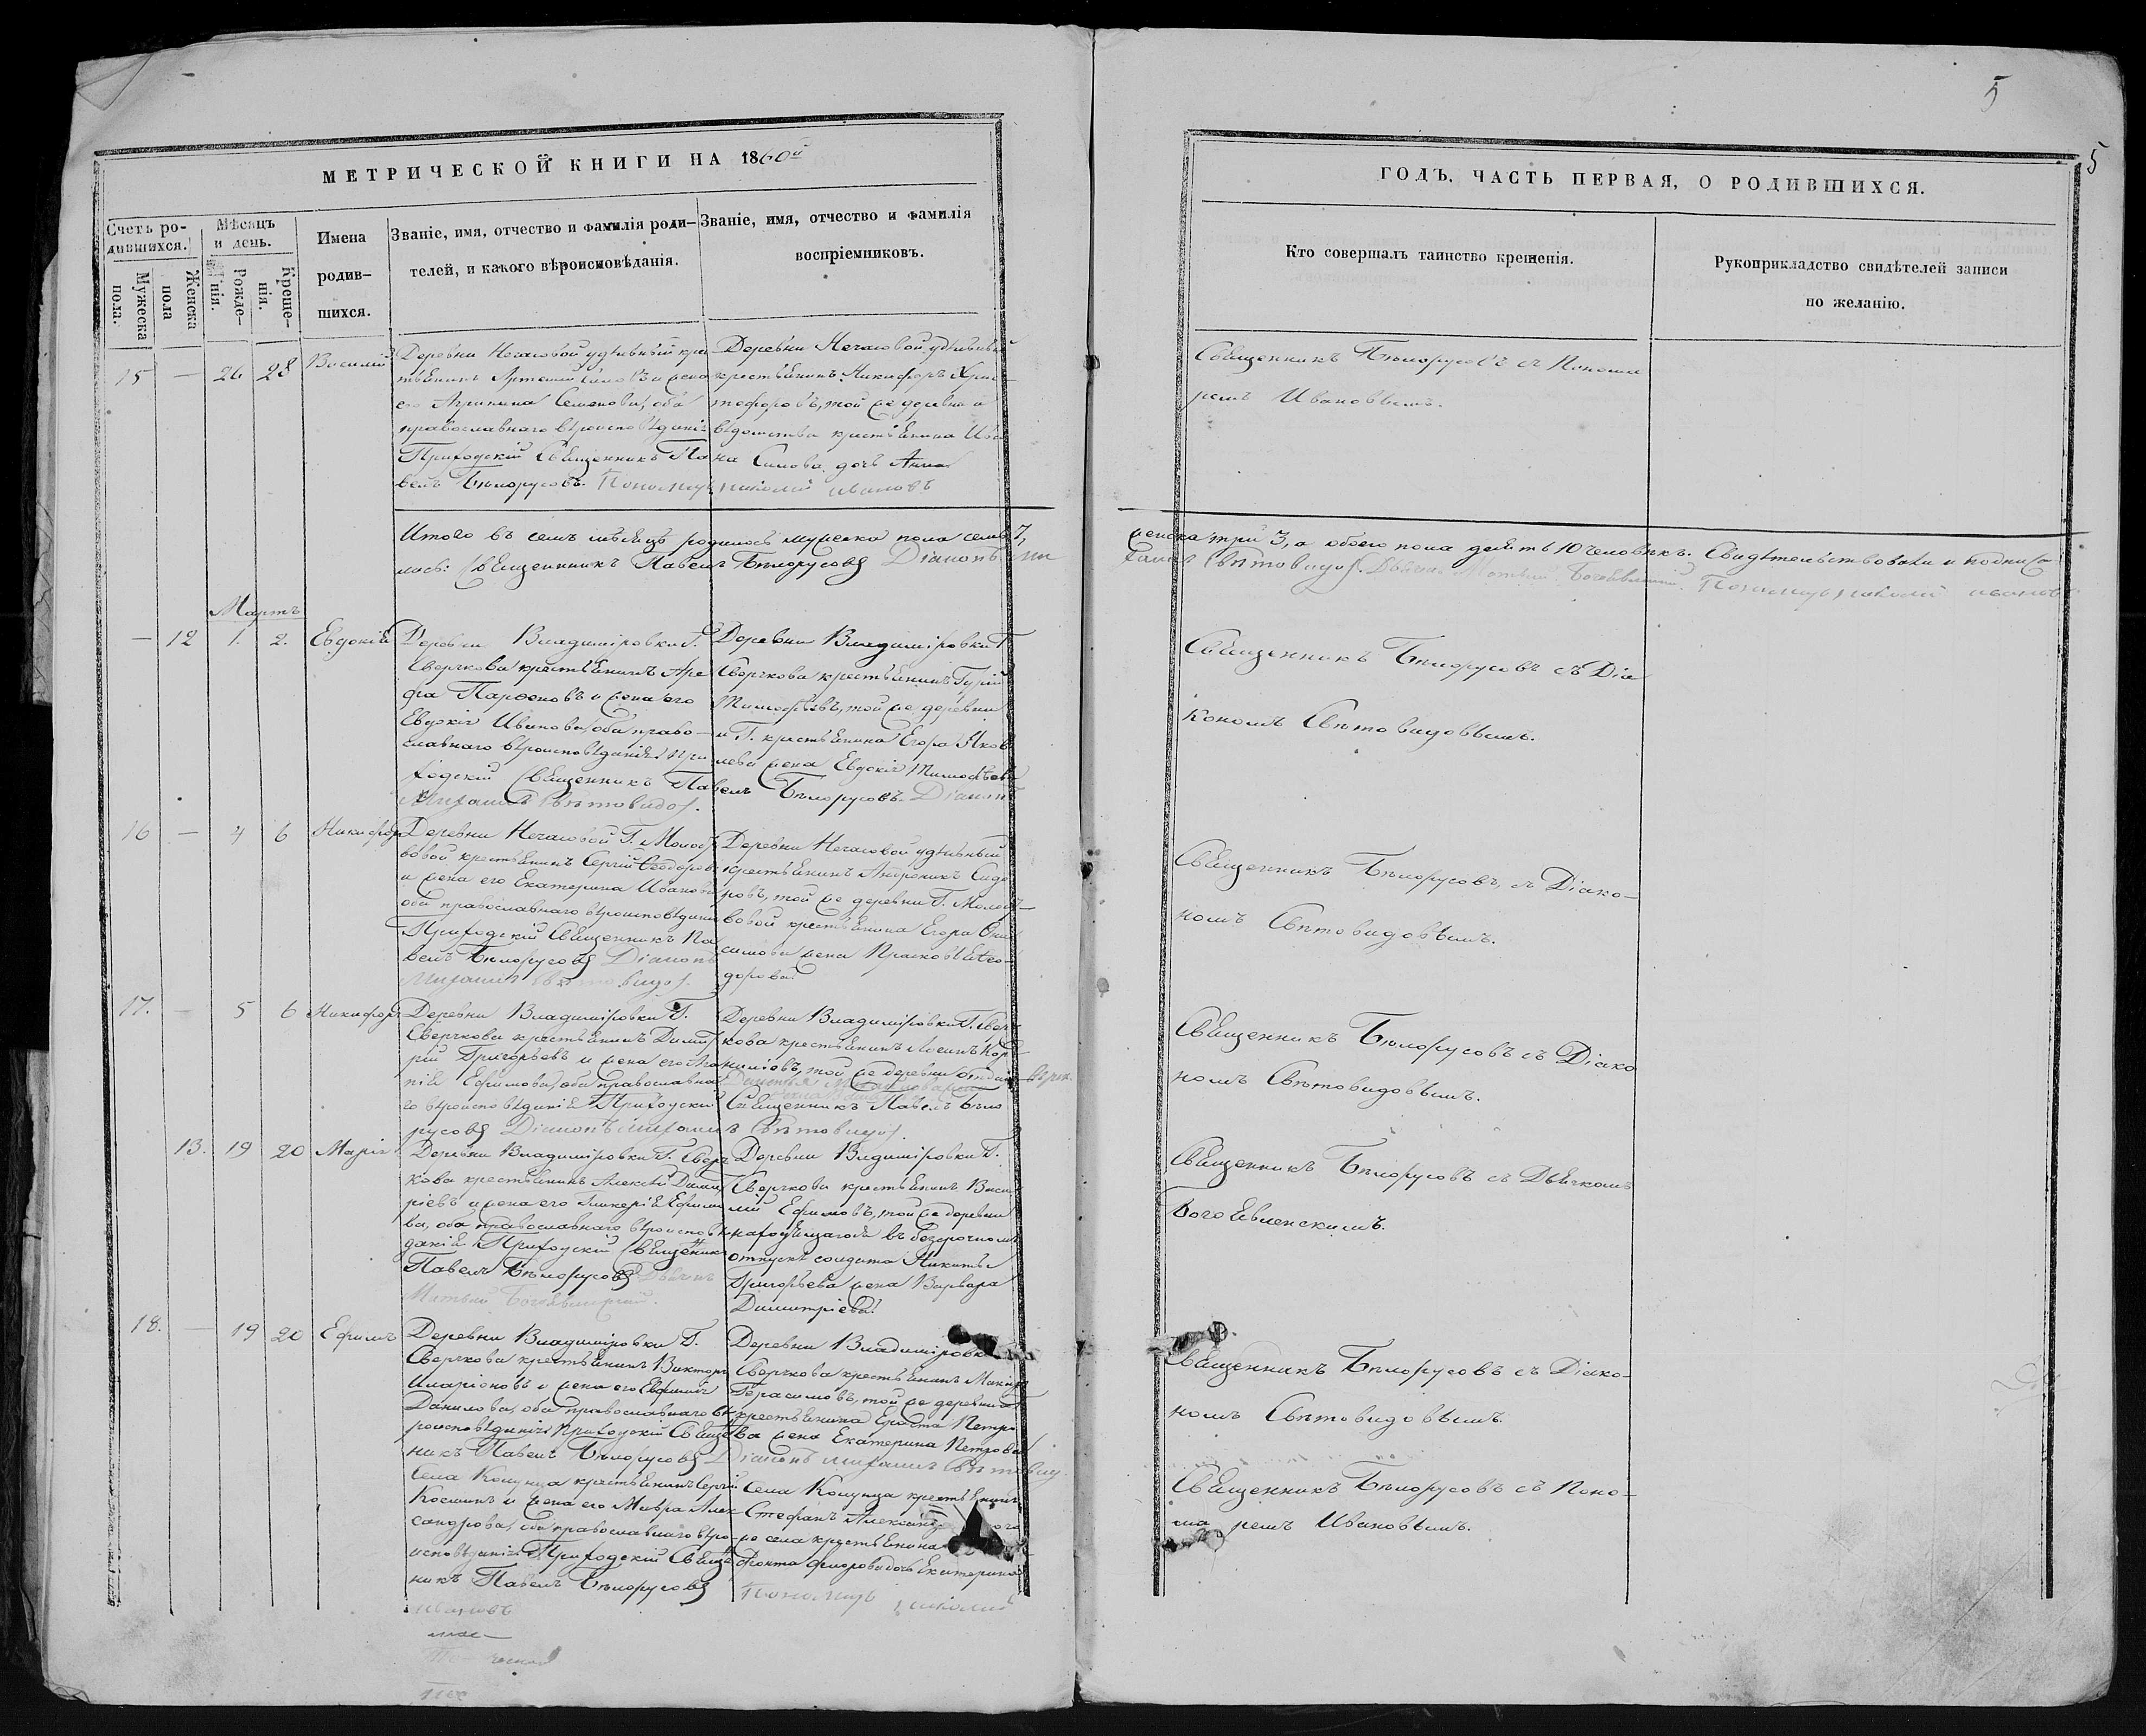 5
5
МЕТРИЧЕСКОЙ КНИГИ НА 1860й
ГОДЪ. ЧАСТЬ ПЕРВАЯ, О РОДИВШИХСЯ.
Счетъ ро-
дившихся.
Мужеска
пола.
Женска
пола
Мѣсяцъ
и день.
Рожде-
нія.
Креще-
нія.
Имена
родив-
шихся.
Званіе, имя, отчество и фамилія роди-
телей, и какого вѣроисповѣданія.
Званіе, имя, отчество и фамилія
воспріемниковъ.
Кто совершалъ таинство крещенія.
Рукоприкладство свидѣтелей записи
по желанію.
15 — 26 28 Василій
Деревни Нечасовой удѣльный кре
его Агрипина Семенова, оба
православнаго вѣроисповѣданія
Приходскій Священникъ Па
велъ Бѣлорусовъ. Пономарь Николай Ивановъ
Деревни Нечасовой удѣльный
крестьянинъ Никифоръ Хрис-
тофоровъ, той же деревни и
вѣдомства крестьянина Ива
на Силова дочь Анна
Священникъ Бѣлорусовъ съ Понома
ремъ Ивановымъ.
Итого въ семъ мѣсяцѣ родилось мужеска пола семь 7,
женска три 3, а обоего пола десять 10 человѣкъ. Свидѣтельствовали и подписа-
лись: Священникъ Павелъ Бѣлорусовъ Діаконъ Ми
хаилъ Свѣтовидов. Дьячекъ Матвѣй Богоявленскій. Пономарь Николай Ивановъ
Мартъ
— 12 1. 2. Евдокія
Деревни Владиміровки Г.
Сверчкова крестьянинъ Аре
фа Парѳеновъ и жена его
Евдокія Иванова, оба право-
славнаго вѣроисповѣданія. При
ходскій Священникъ Павелъ Бѣлорусовъ. Діаконъ
Михаилъ Свѣтовидов.
Деревни Владиміровки Г
Сверчкова крестьянинъ Гурій
Тимофѣевъ, той же деревни
и Г. крестьянина Егора Яков
лева жена Евдокія Тимофѣева
Священникъ Бѣлорусовъ съ Діа
кономъ Свѣтовидовымъ.
16 — 4 6 Никифоръ
Деревни Нечасовой Г.
вовой крестьянинъ Сергій Ѳеодоровъ
и жена его Екатерина Иванова
оба православнаго вѣроисповѣданія
Приходскій Священникъ Па
велъ Бѣлорусовъ Діаконъ
Михаилъ Свѣтовидов.
Деревни Нечасовой удѣльный
крестьянинъ Андроникъ Сидо
ровъ, той же деревни Г.
вовой крестьянина Егора Они
симова жена Прасковья Ѳео-
дорова
Священникъ Бѣлорусовъ, съ Діако-
номъ Свѣтовидовымъ.
17. — 5 6 Никифоръ
Деревни Владиміровки Г.
Сверчкова крестьянинъ Димит
рій Григорьевъ и жена его
Ефимова, оба православна
го вѣроисповѣданія Приходскій Священникъ Павелъ Бѣло
русовъ Діаконъ Михаилъ Свѣтовидов.
Деревни Владиміровки Г. Сверч
кова крестьянинъ
ниловъ, той же деревни
Священникъ Бѣлорусовъ съ Діако
номъ Свѣтовидовымъ.
13. 19 20 Марія
Деревни Владиміровки Г. Сверч
кова крестьянинъ Алексѣй Димит
ріевъ и жена его Гликерія Ефимо
ва, оба православнаго вѣроисповѣ
данія Приходскій Священникъ
Павелъ Бѣлорусовъ Дьячекъ
Матвѣй Богоявленскій.
Деревни Владиміровки Г.
Сверчкова крестьянинъ Васи
лій Ефимовъ, той же деревни
находящагося въ безсрочномъ
отпуску солдата Никиты
Григорьева жена Варвара
Димитріева
Священникъ Бѣлорусовъ съ Дьячкомъ
Богоявленскимъ.
18. — 19 20 Ефимъ
Деревни Владиміровки Г.
Сверчкова крестьянинъ Викторъ
Иларіоновъ и жена его Евфимія
Данилова, оба православнаго вѣ
роисповѣданія Приходскій Священ
никъ Павелъ Бѣлорусовъ Діаконъ Михаилъ Свѣтовид
Деревни Владиміровки
Сверчкова крестьянинъ
Герасимовъ, той же деревни
крестьянина Ераста Петро
ва жена Екатерина Петрова
Священникъ Бѣлорусовъ съ Діако-
номъ Свѣтовидовымъ.
Села крестьянинъ Сергій
Косминъ и жена его Мавра Алек
сандрова, оба православнаго вѣро-
исповѣданія Приходскій Священ
никъ Павелъ Бѣлорусовъ
Ивановъ
Села крестьянинъ
Стефанъ
же села крестьянина
дочь Екатерина
Пономарь Николай
Священникъ Бѣлорусовъ съ Поно-
маремъ Ивановымъ.